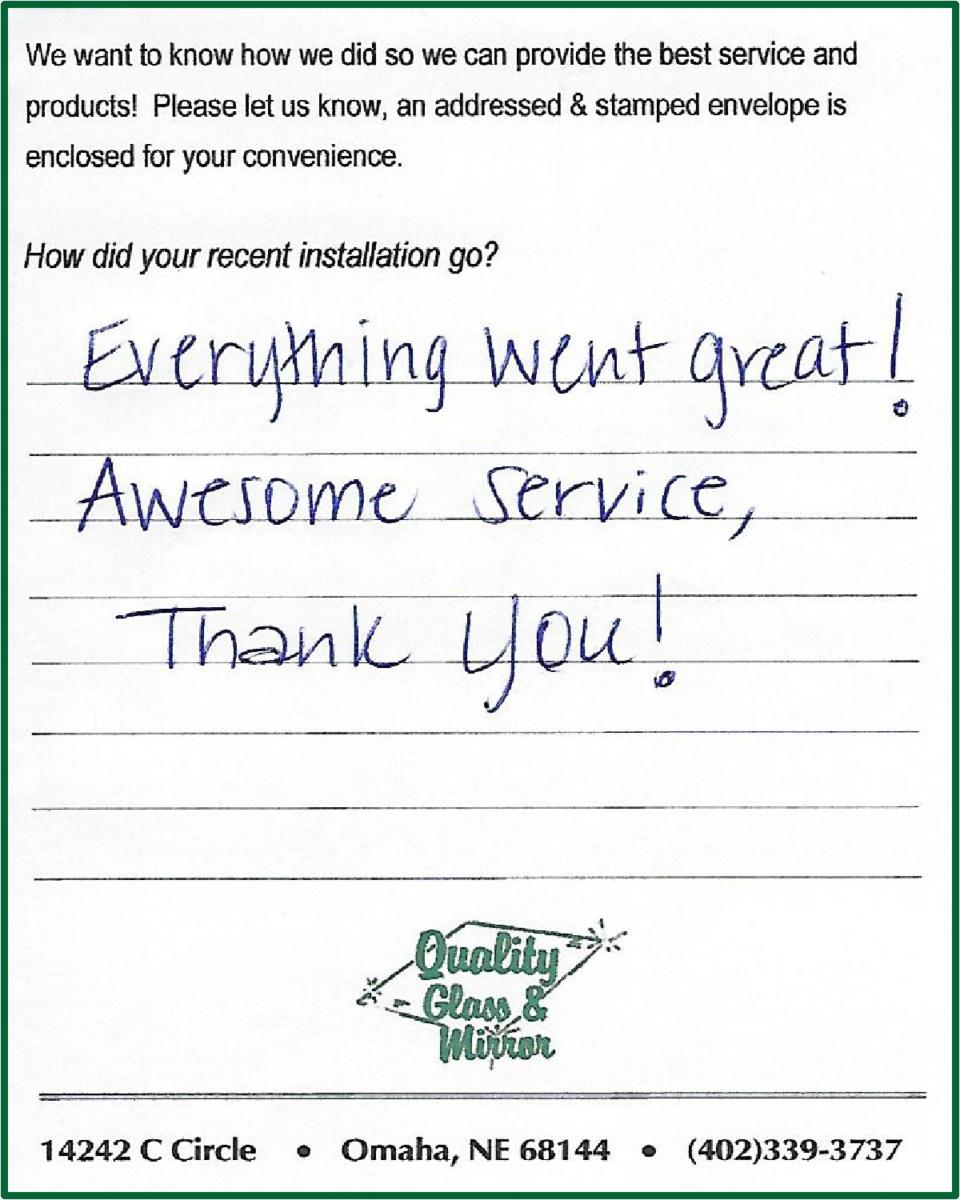 We want to know how we did so we can provide the best service and
products! Please let us know, an addressed & stamped envelope is
enclosed for your convenience.
How did your recent installation go?
Everything went great!
Awesome service,
Thank you!
Quality
Glass &
Mirror
14242 C Circle • Omaha, NE 68144 • (402)339-3737